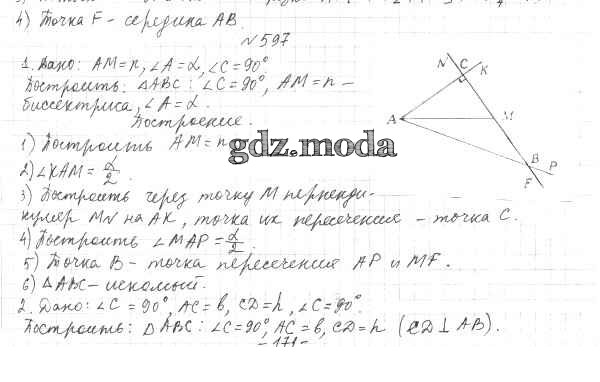 4) Точка F – середина AB.
№597
1. Дано: AM=n, ∠A=α, ∠C=90°
Построить: △ABC: ∠C=90°, AM=n –
биссектриса, ∠A=α.
Построение.
1) Построить AM=n
2) ∠KAM=α/2.
3) Построить через точку M перпенди-
куляр MN на AK, точка их пересечения – точка C.
4) Построить ∠MAP=α/2.
5) Точка B – точка пересечения AP и MF.
6) △ABC – искомый.
2. Дано: ∠C=90°, AC=b, CD=h, ∠C=90°.
Построить: △ABC: ∠C=90°, AC=b, CD=h (CD⊥AB).
– 171 –
gdz.moda
N
C
K
A
M
B
P
F